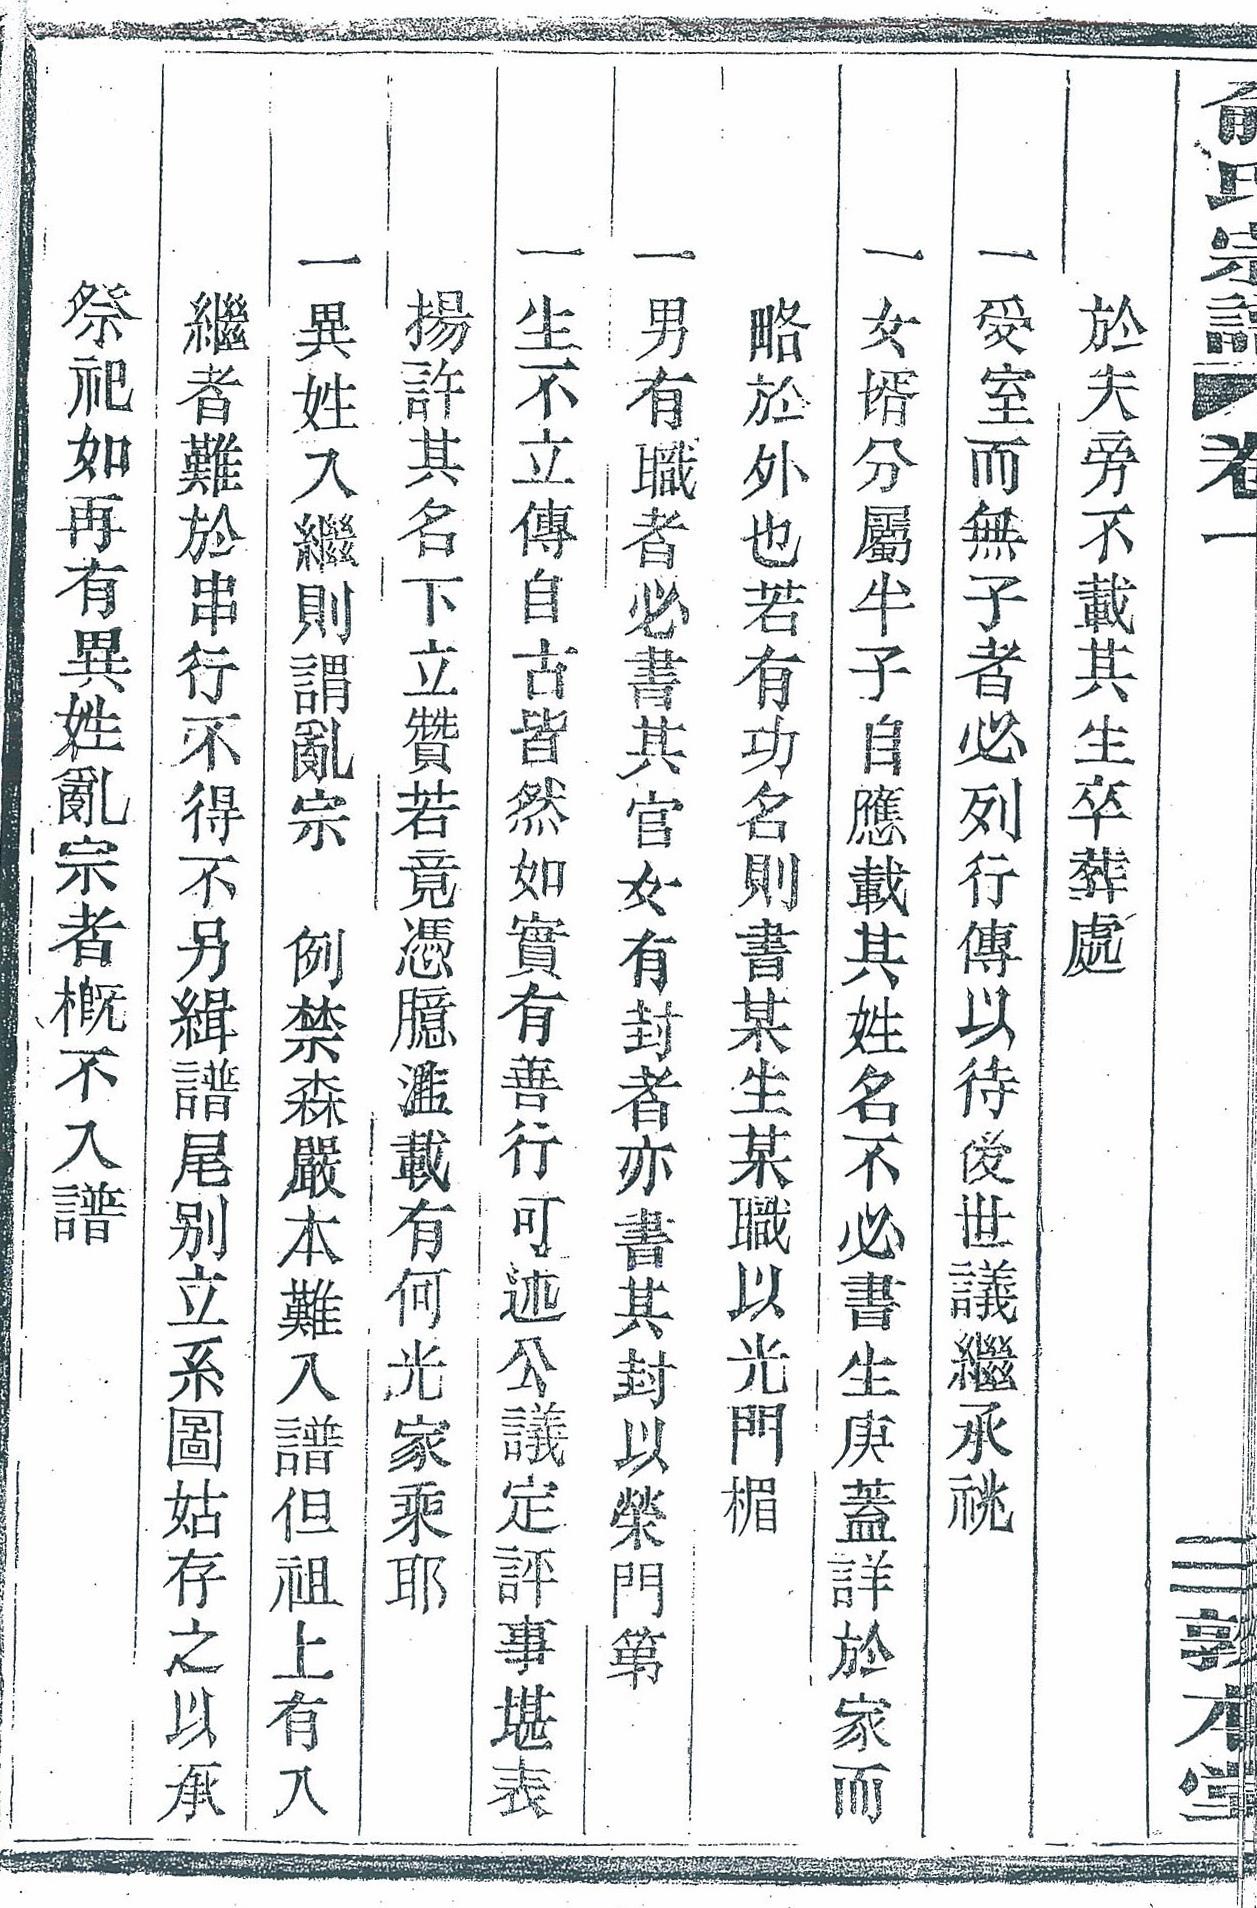 俞氏宗譜 卷一 三 敦本堂
於夫旁不載其生卒葬處
一受室而無子者必列行傳以待後世議繼承祧
一女壻分屬半子自應載其姓名不必書生庚蓋詳於家而
略於外也若有功名則書某生某職以光門楣
一男有職者必書其官女有封者亦書其封以榮門第
一生不立傳自古皆然如實有善行可述公議定評事堪表
揚許其名下立贊若竟憑臆濫載有何光家乘耶
一異姓入繼則謂亂宗　例禁森嚴本難入譜但祖上有入
繼者難於串行不得不另緝譜尾別立系圖姑存之以承
祭祀如再有異姓亂宗者概不入譜